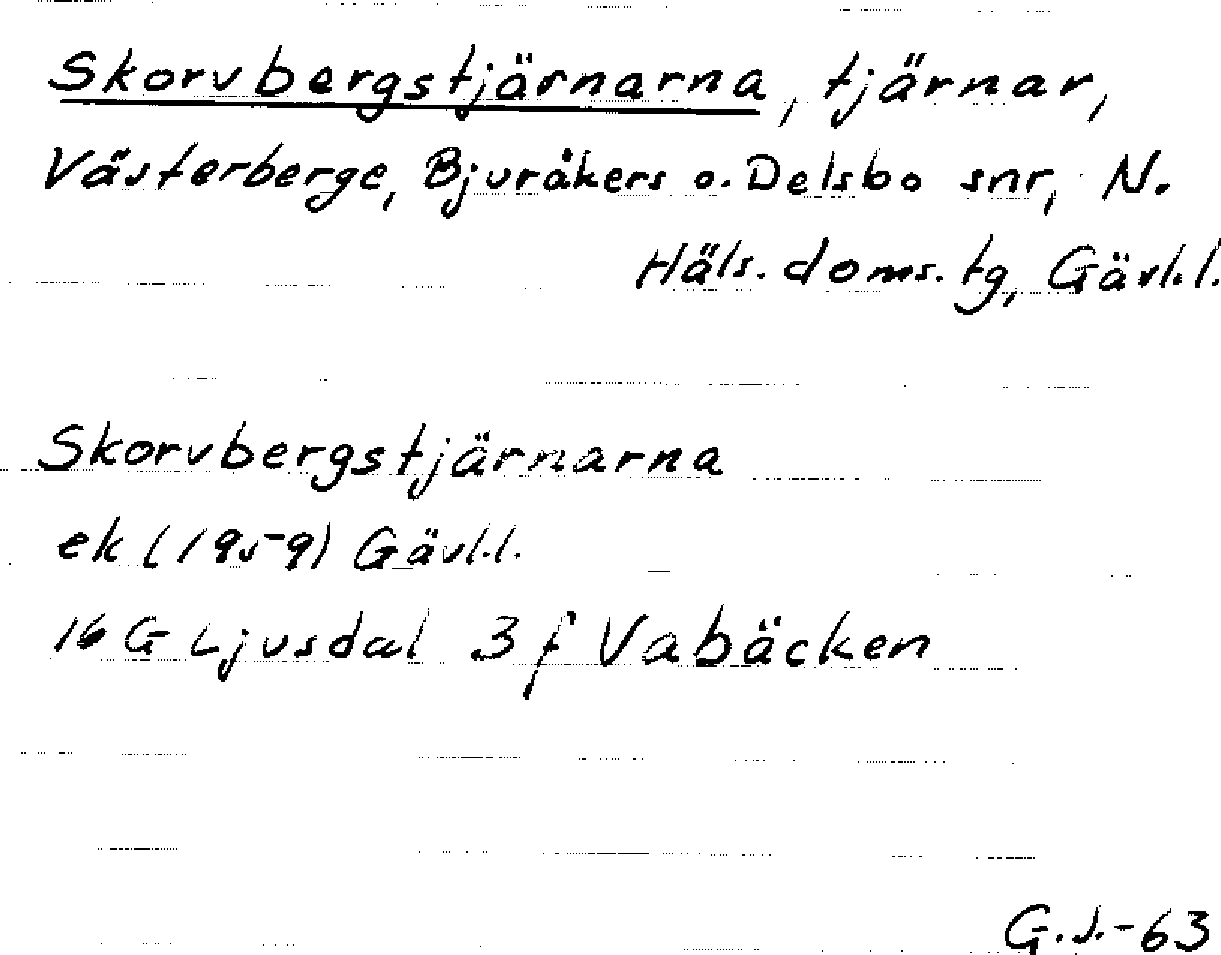 Skorvbergstjärnarna, tjärnar,
Västerberge, Bjuråkers o. Delsbo snr, N.
Häls. doms. tg, Gävl.l.
Skorvbergstjärnarna
ek (1959) Gävl.l.
16 G Ljusdal 3 f Vabäcken
G.J.-63